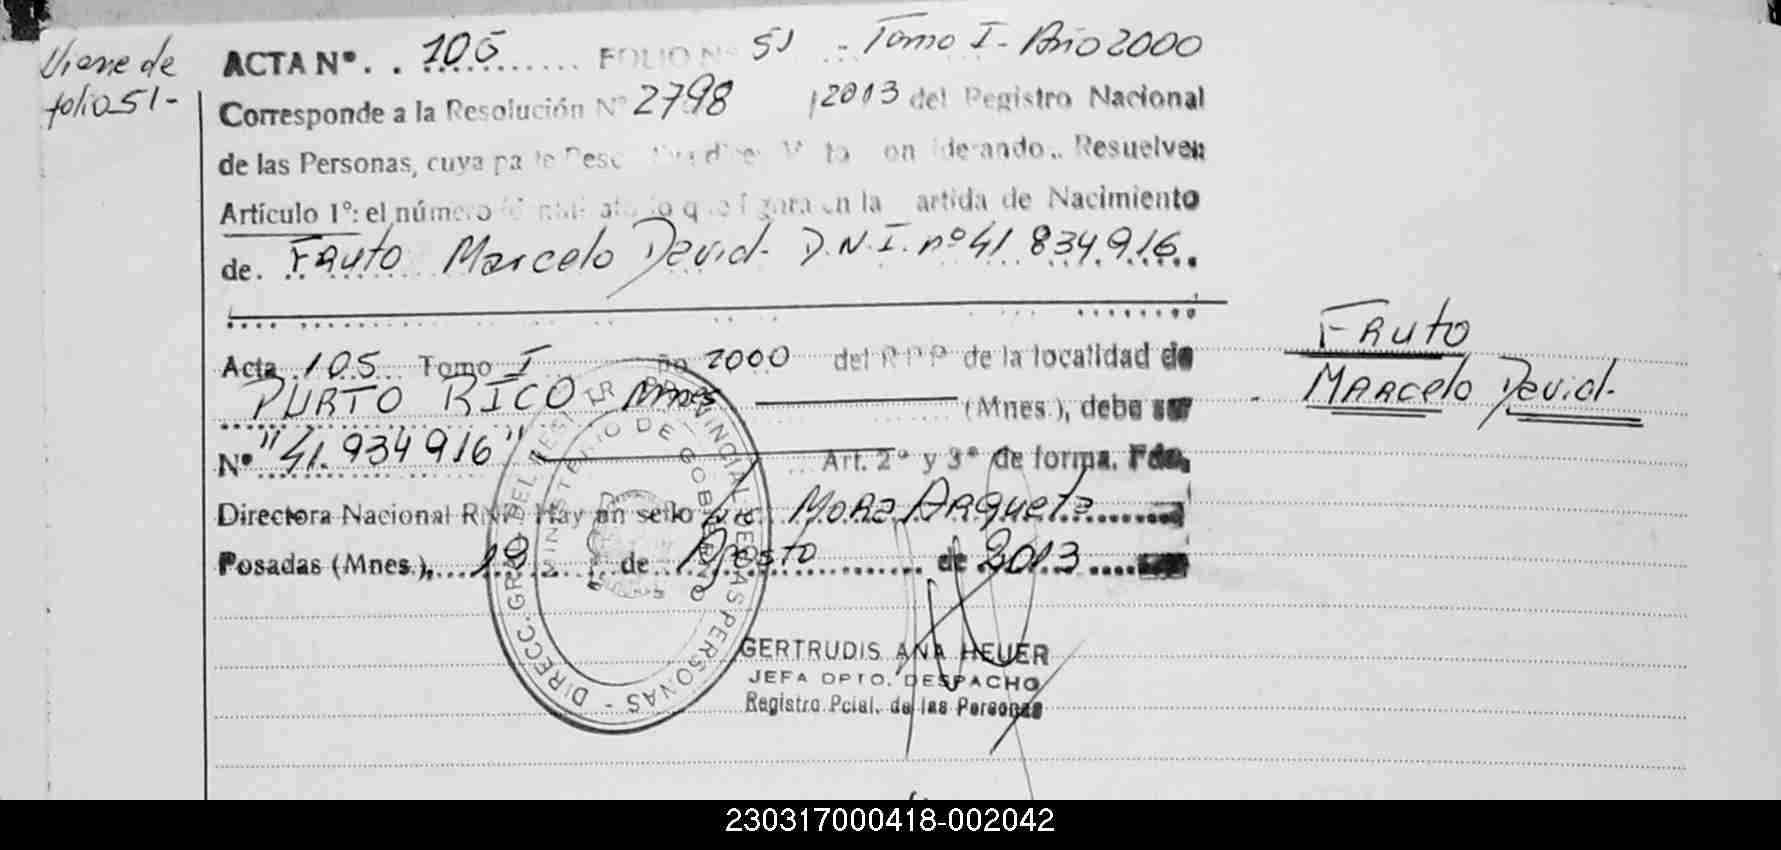 Viene de
folio 51-
ACTA Nº. . 105 FOLIO Nº 51 - Tomo I - Año 2000
Corresponde a la Resolución Nº 2798 /2013 del Registro Nacional
de las Personas, cuya pa te Resuelven
Artículo 1º: el número que figura en la artida de Nacimiento
de. Fruto Marcelo David - D.N.I. nº 41.834.916.
Acta 105 Tomo I ño 2000 del RPP de la localidad de
PURTO RICO Mnes (Mnes.), debe ser
Nº "41.934916" Art. 2º y 3º de forma. Fdo.
Directora Nacional RNP. Hay un sello Mora Arqueta
Posadas (Mnes.), 19 de Agosto de 2013
Fruto
Marcelo David-
DIRECC. GRAL DEL REST. PROVINCIAL DE LAS PERSONAS -
MINISTERIO DE GOBIERNO
GERTRUDIS ANA HEUER
JEFA DPTO. DESPACHO
Registro Pcial. de las Personas
230317000418-002042